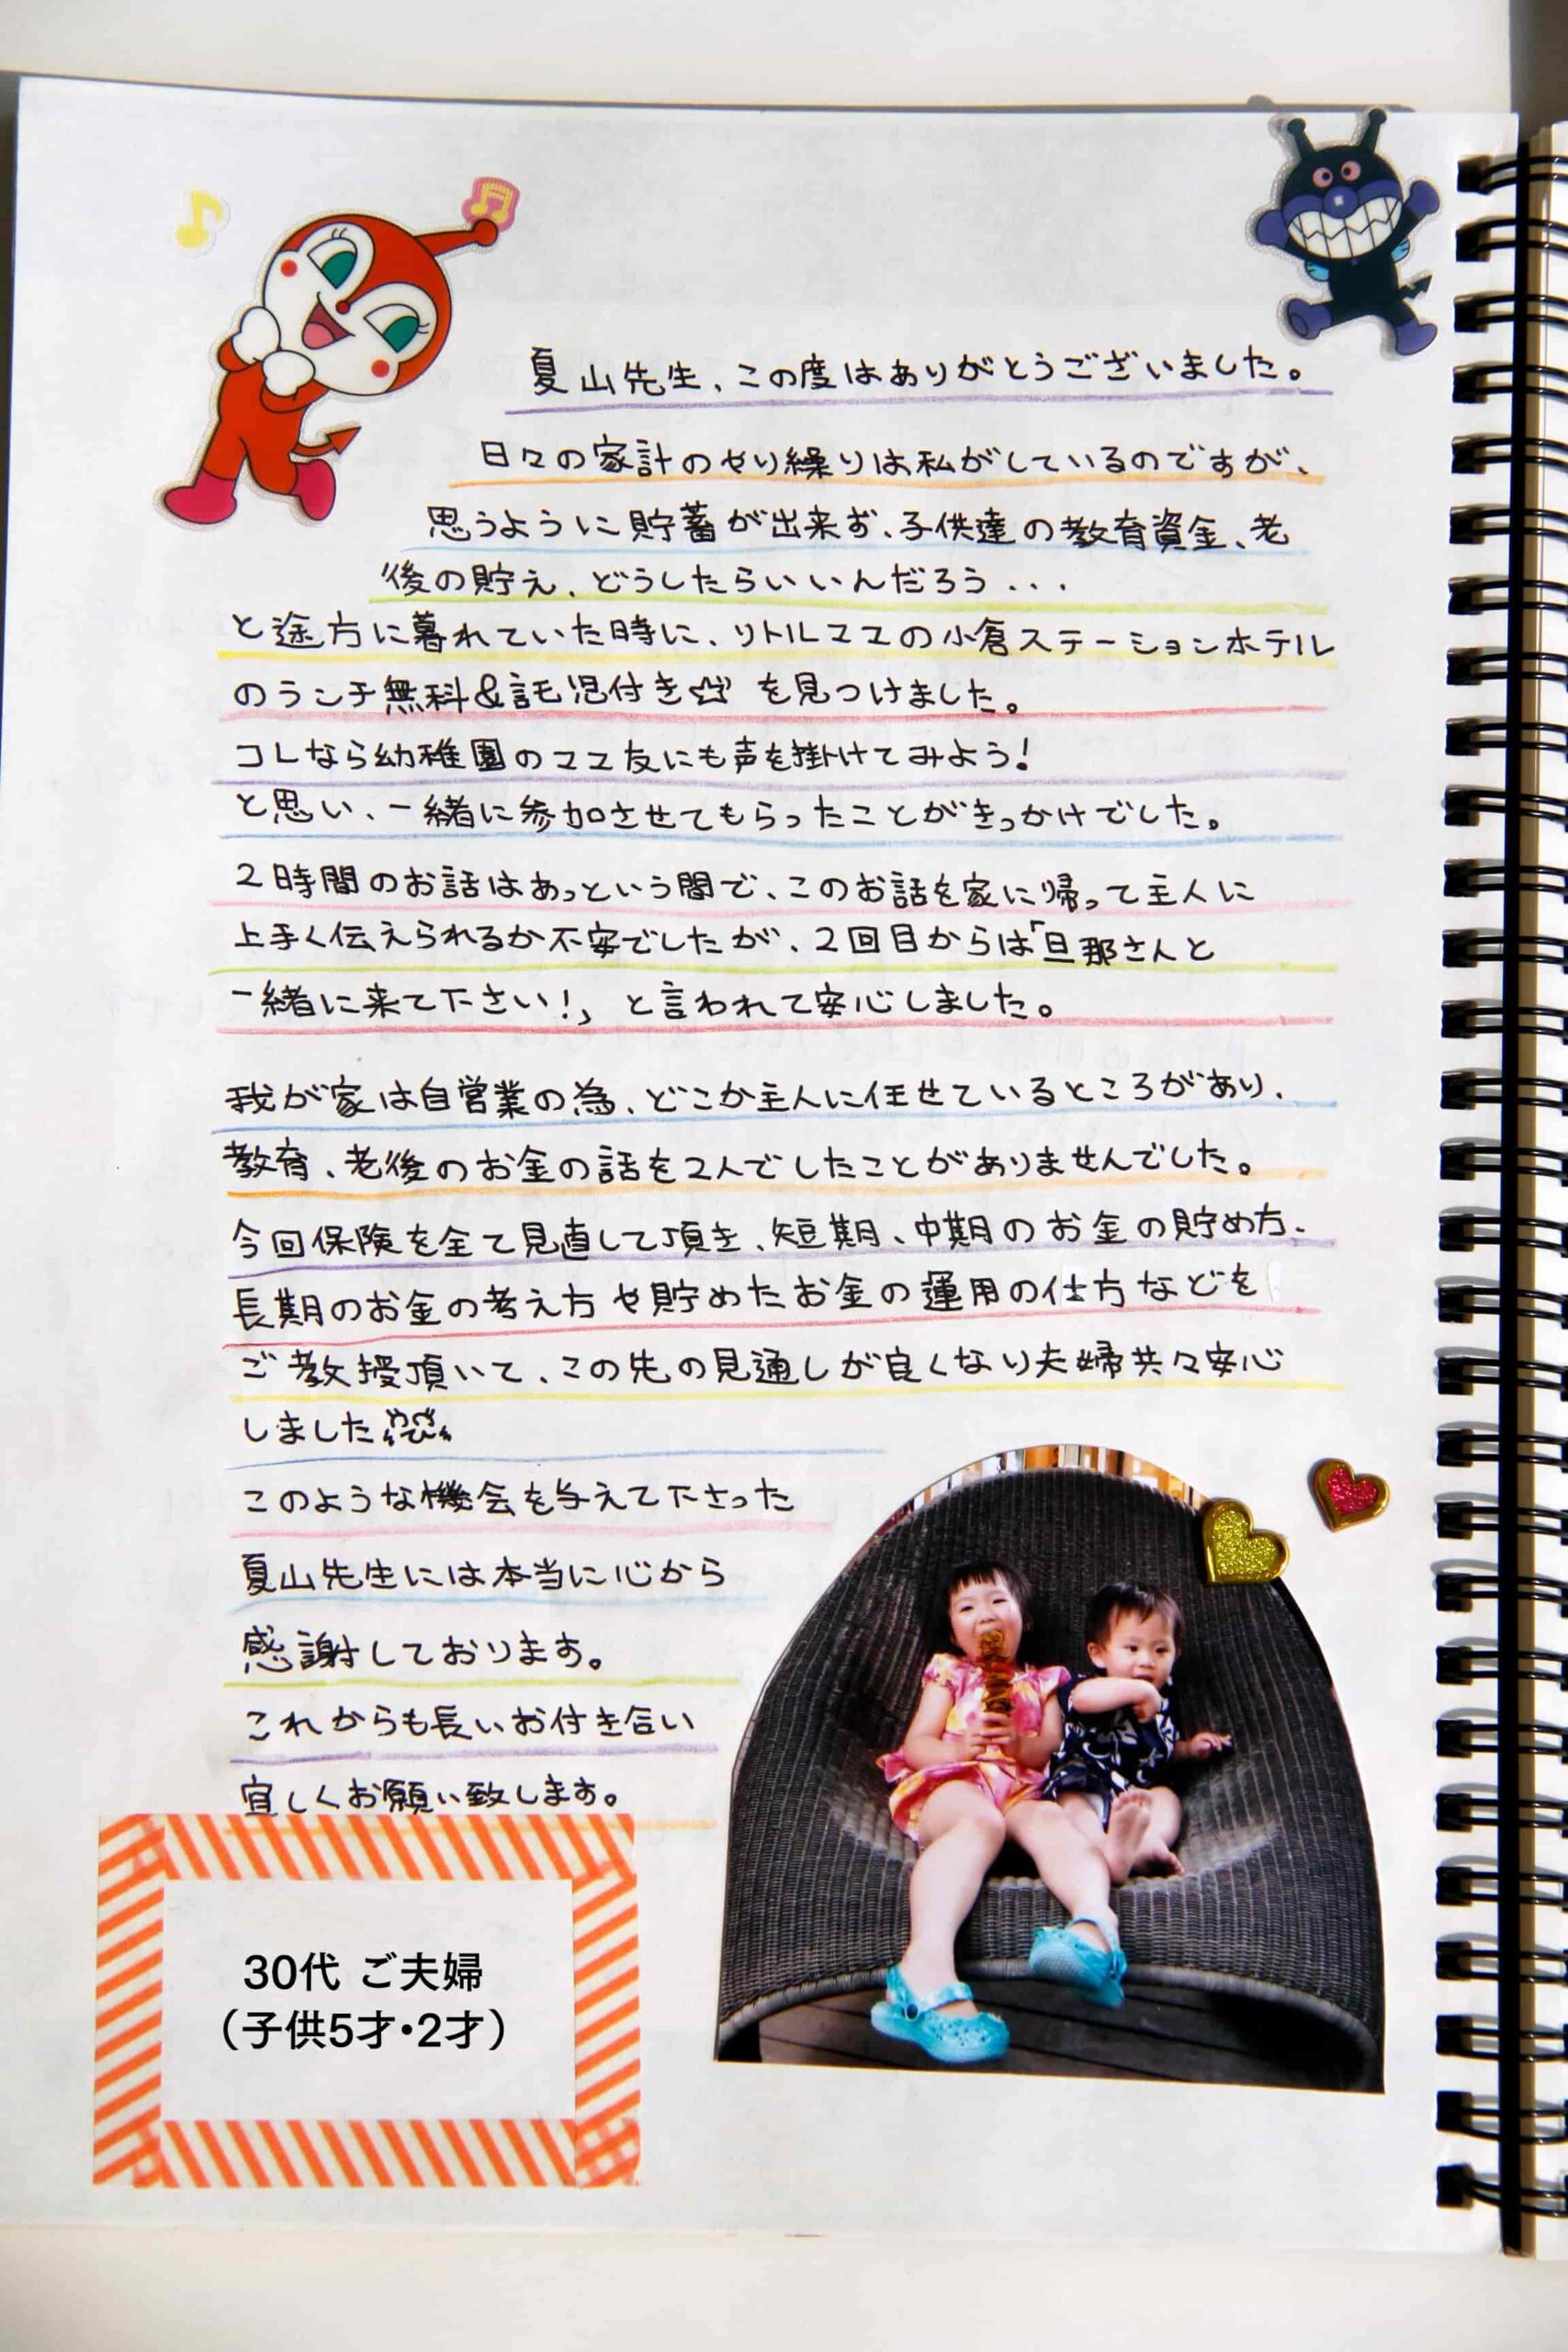 夏山先生、この度はありがとうございました。
日々の家計のやり繰りは私がしているのですが、
思うように貯蓄が出来ず、子供達の教育資金、老
後の貯え、どうしたらいいんだろう...
と途方に暮れていた時に、リトルママの小倉ステーションホテル
のランチ無料&託児付き☆ を見つけました。
コレなら幼稚園のママ友にも声を掛けてみよう!
と思い、一緒に参加させてもらったことがきっかけでした。
2時間のお話はあっという間で、このお話を家に帰って主人に
上手く伝えられるか不安でしたが、2回目からは「旦那さんと
一緒に来て下さい!」と言われて安心しました。
我が家は自営業の為、どこか主人に任せているところがあり、
教育、老後のお金の話を2人でしたことがありませんでした。
今回保険を全て見直して頂き、短期、中期のお金の貯め方、
長期のお金の考え方や貯めたお金の運用の仕方などを
ご教授頂いて、この先の見通しが良くなり夫婦共々安心
しました
このような機会を与えて下さった
夏山先生には本当に心から
感謝しております。
これからも長いお付き合い
宜しくお願い致します。
30代 ご夫婦
(子供5才・2才)